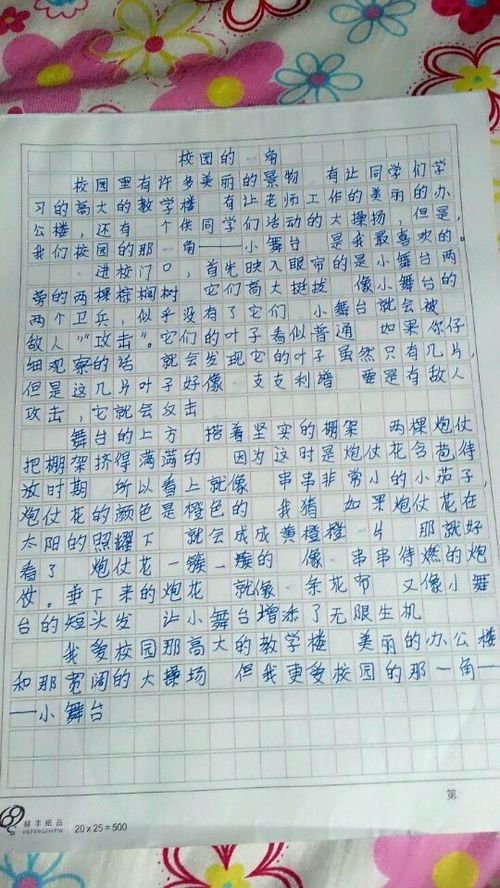 校园的一角
校园里有许多美丽的景物 有让同学们学
习的高大的教学楼 有让老师工作的美丽的办
公楼,还有 个供同学们活动的大操场,但是,
我们校园的那一角——小舞台 是我最喜欢的。
进校门口,首先映入眼帘的是小舞台两
旁的两棵棕榈树 它们高大挺拔 像小舞台的
两个卫兵,似乎没有了它们 小舞台就会被
敌人"攻击"。它们的叶子看似普通 如果你仔
细观察的话 就会发现它的叶子虽然只有几片,
但是这几片叶子好像 支支利 要是有敌人
攻击,它就会反击
舞台的上方 搭着坚实的棚架 两棵炮仗
把棚架挤得满满的 因为这时是炮仗花含苞待
放时期 所以看上就像 串串非常小的小茄子,
炮仗花的颜色是橙色的 我猜 如果炮仗花在
太阳的照耀下 就会成成黄橙橙一片 那就好
看了 炮仗花一簇一簇的 像一串串待燃的炮
仗。垂下来的炮花 就像一条花布 又像小舞
台的短头发 让小舞台增添了无限生机
我爱校园那高大的教学楼 美丽的办公楼
和那宽阔的大操场 但我更爱校园的那一角—
——小舞台
第
20×25=500